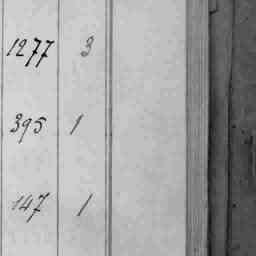 1277 3
395 1
147 1